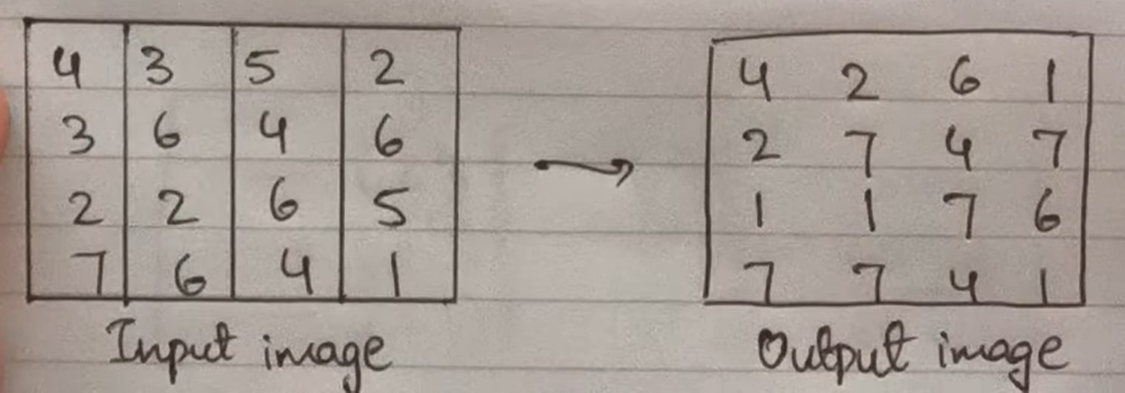 4 3 5 2
3 6 4 6
2 2 6 5
7 6 4 1
Input image
4 2 6 1
2 7 4 7
1 1 7 6
7 7 4 1
Output image